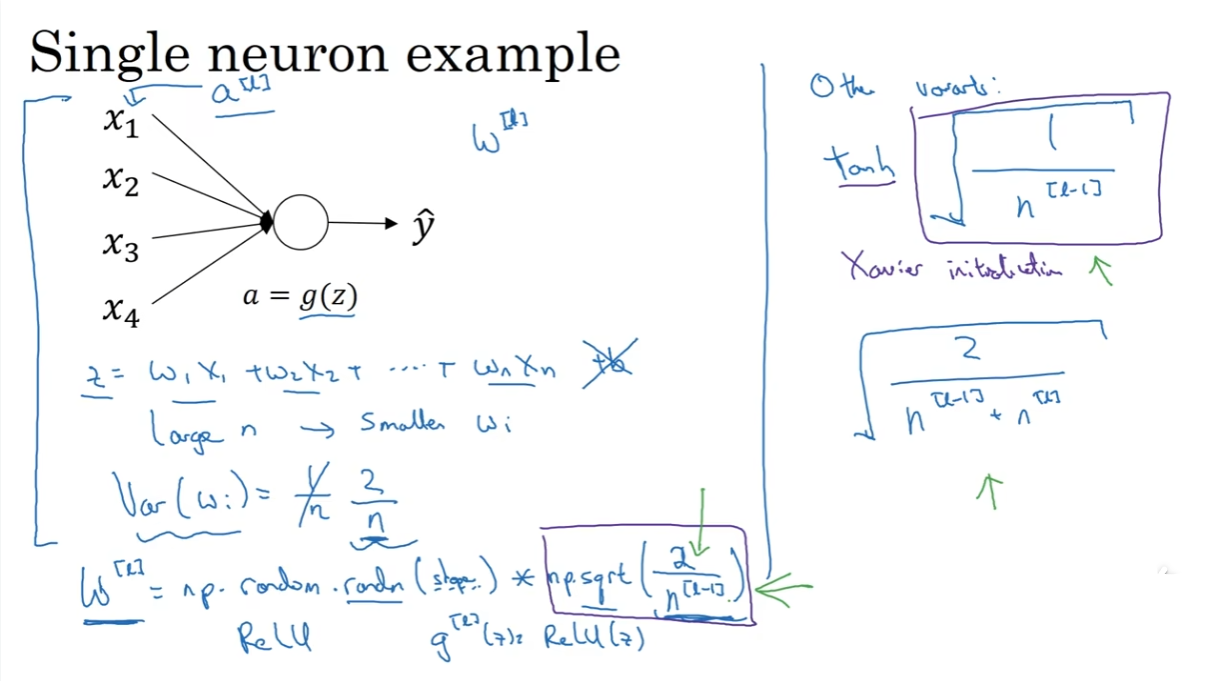 Single neuron example
a^[l]
x₁
x₂
x₃
x₄
ŷ
a = g(z)
w^[l]
z = w₁x₁ + w₂x₂ + ····· + wₙxₙ +b
Large n → Smaller wᵢ
Var(wᵢ) = 1/n 2/n
W^[l] = np.random.randn(shape) * np.sqrt(2/n^[l-1])
ReLU g^[l](z) = ReLU(z)
Other variants:
tanh √(1/n^[l-1])
Xavier initialization ↑
√(2/(n^[l-1] + n^[l]))
↑